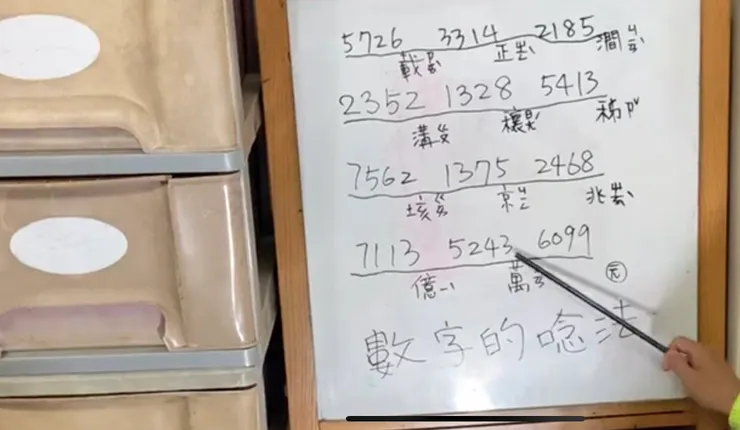 5726 3314 2185
載ㄗㄞˋ 正ㄓㄥˋ 澗ㄐㄧㄢˋ
2352 1328 5413
溝ㄍㄡ 穰ㄖㄤˊ 秭ㄗˇ
7562 1375 2468
垓ㄍㄞ 京ㄐㄧㄥ 兆ㄓㄠˋ
7113 5243 6099
億ㄧˋ 萬ㄨㄢˋ 元
數字的唸法